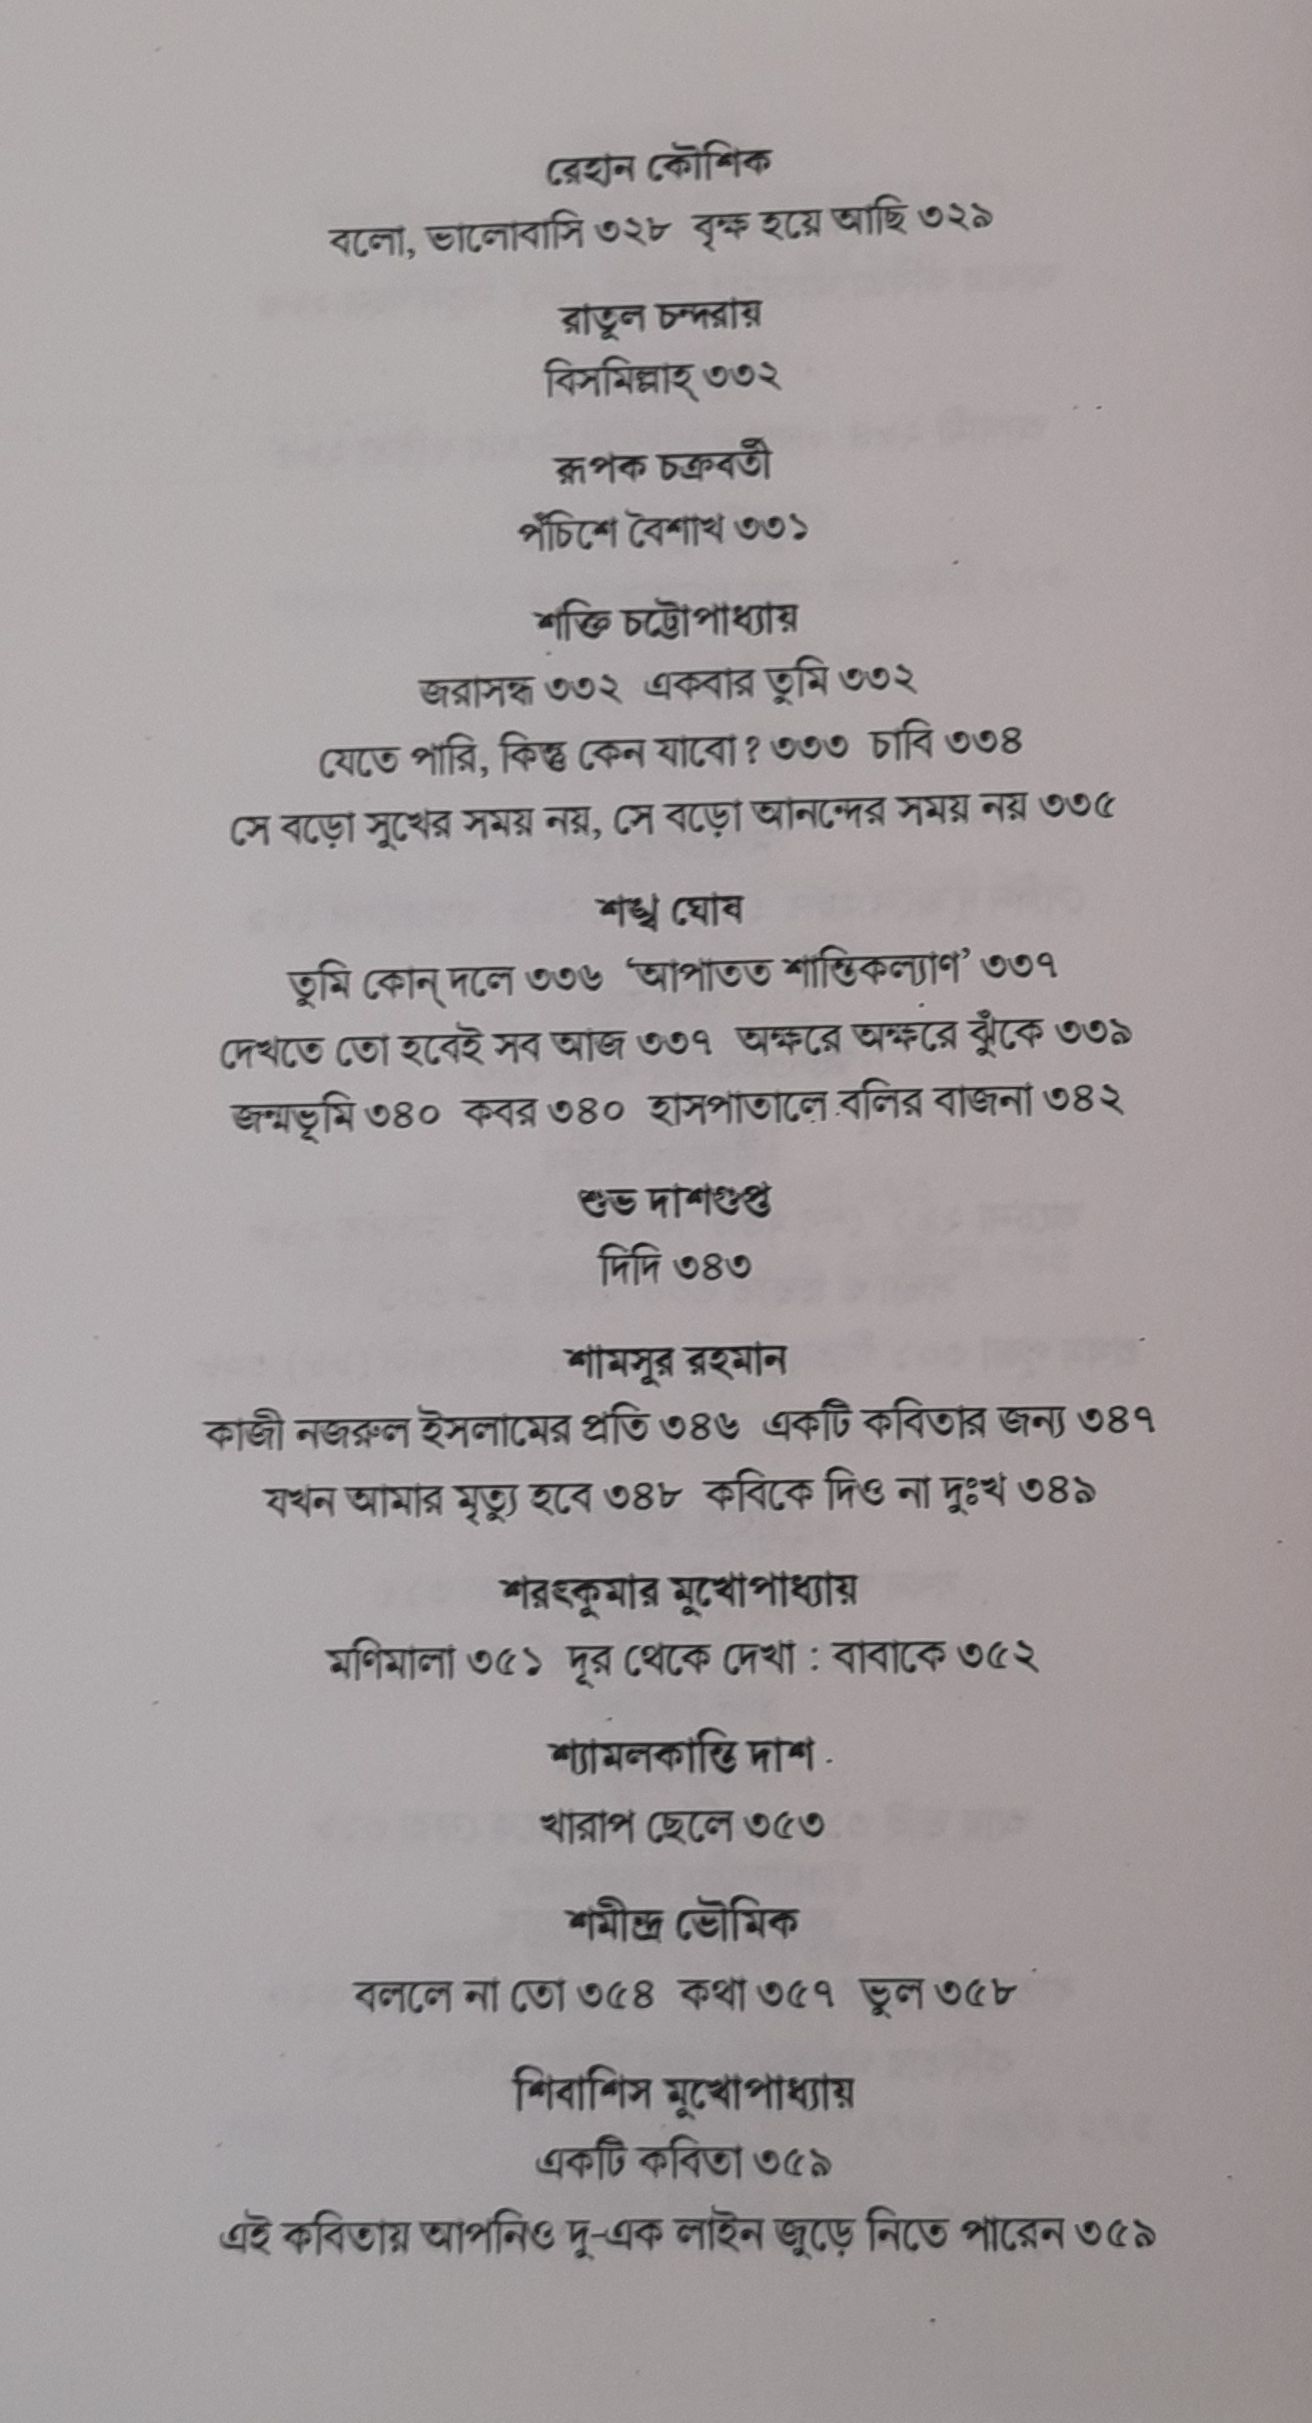 রেহান কৌশিক
বলো, ভালোবাসি ৩২৮ বৃক্ষ হয়ে আছি ৩২৯
রাতুল চন্দরায়
বিসমিল্লাহ্ ৩৩২
রূপক চক্রবর্তী
পঁচিশে বৈশাখ ৩৩১
শক্তি চট্টোপাধ্যায়
জরাসন্ধ ৩৩২ একবার তুমি ৩৩২
যেতে পারি, কিন্তু কেন যাবো? ৩৩৩ চাবি ৩৩৪
সে বড়ো সুখের সময় নয়, সে বড়ো আনন্দের সময় নয় ৩৩৫
শঙ্খ ঘোষ
তুমি কোন্ দলে ৩৩৬ ‘আপাতত শান্তিকল্যাণ’ ৩৩৭
দেখতে তো হবেই সব আজ ৩৩৭ অক্ষরে অক্ষরে ঝুঁকে ৩৩৯
জন্মভূমি ৩৪০ কবর ৩৪০ হাসপাতালে বলির বাজনা ৩৪২
শুভ দাশগুপ্ত
দিদি ৩৪৩
শামসুর রহমান
কাজী নজরুল ইসলামের প্রতি ৩৪৬ একটি কবিতার জন্য ৩৪৭
যখন আমার মৃত্যু হবে ৩৪৮ কবিকে দিও না দুঃখ ৩৪৯
শরৎকুমার মুখোপাধ্যায়
মণিমালা ৩৫১ দূর থেকে দেখা : বাবাকে ৩৫২
শ্যামলকান্তি দাশ
খারাপ ছেলে ৩৫৩
শমীন্দ্র ভৌমিক
বললে না তো ৩৫৪ কথা ৩৫৭ ভুল ৩৫৮
শিবাশিস মুখোপাধ্যায়
একটি কবিতা ৩৫৯
এই কবিতায় আপনিও দু-এক লাইন জুড়ে নিতে পারেন ৩৫৯